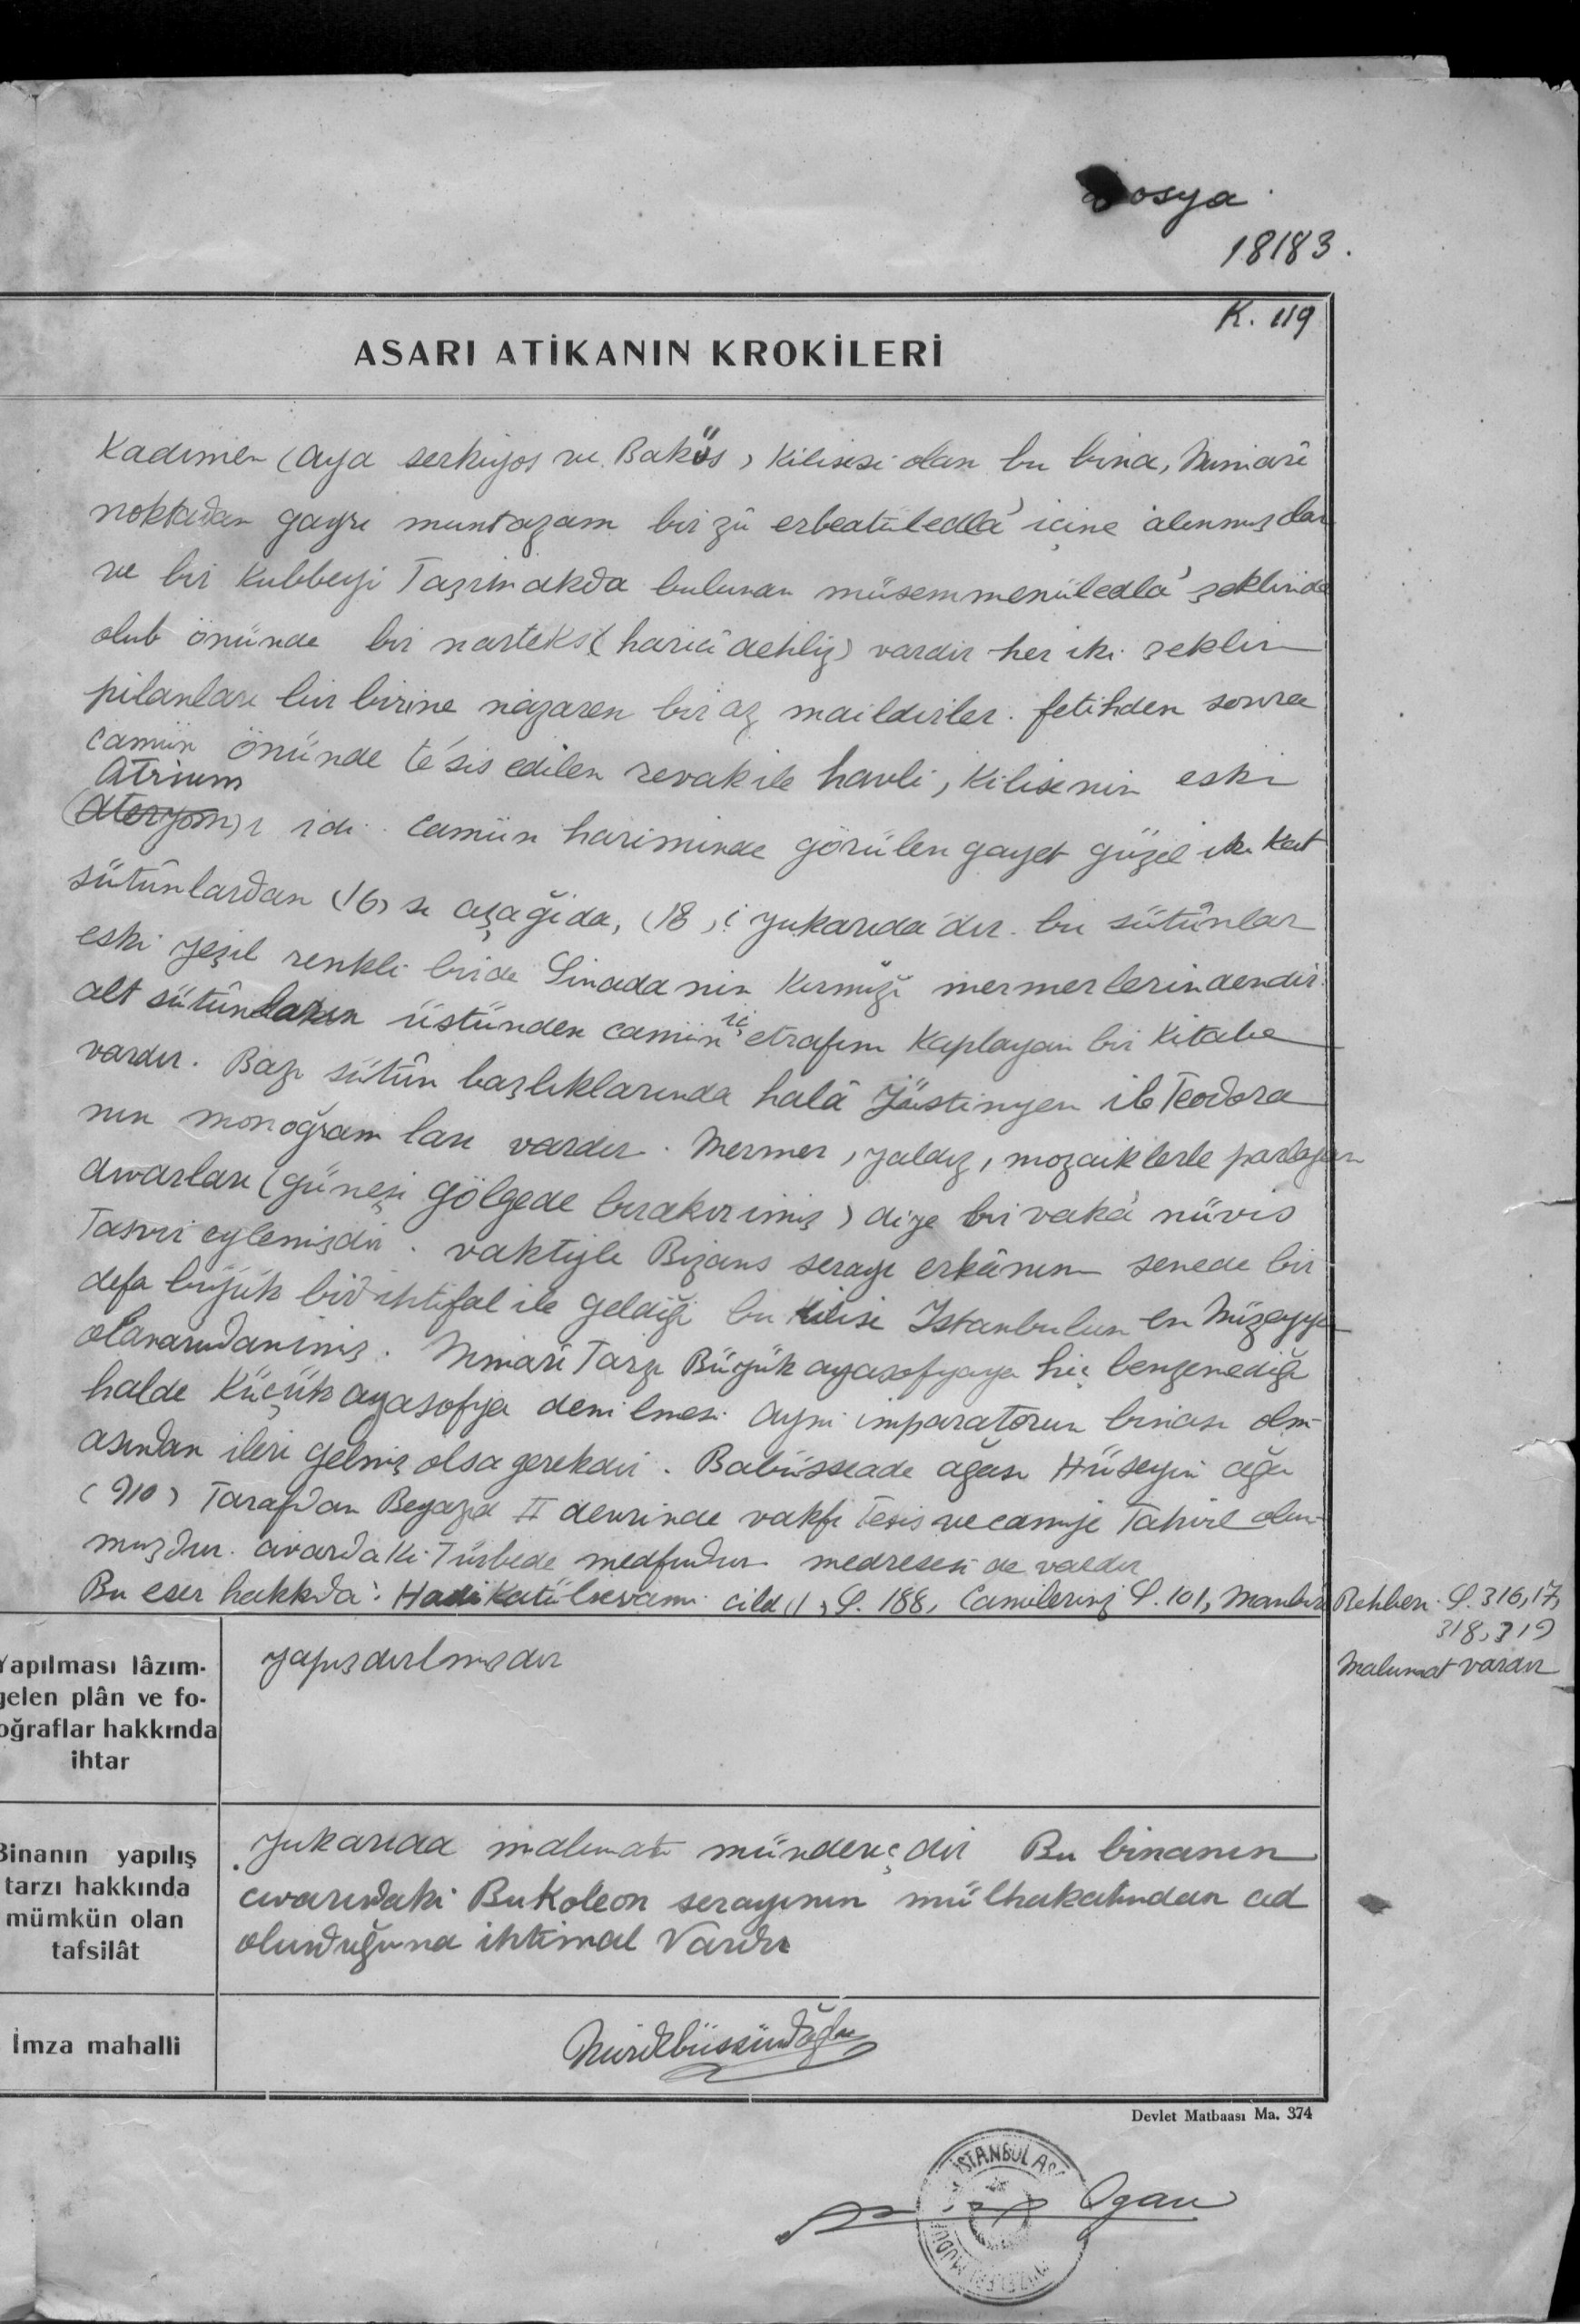 dosya
18183.
K. 119
ASARI ATİKANIN KROKİLERİ
Kadimen (Aya serkiyos ve Baküs) Kilisesi olan bu bina, Mimarî
noktadan gayrı muntazam bir zû erbeatüledlâ' içine alınmış olan
ve bir Kubbeyi Taşımakda bulunan müsemmenüledlâ' şeklinde
olub önünde bir narteks (haricî dehliz) vardır her iki şeklin
pilanları bir birine nazaren bir az maildirler. fetihden sonra
camiin önünde te'sis edilen revak ile havli, Kilisenin eski
Atrium
(Ateryom)ı idi. Camiin hariminde görülen gayet güzel iki Kat
sütûnlardan (16) sı aşağıda, (18) i yukarıda'dır. bu sütûnlar
eski yeşil renkli biride Sinada nin Kırmızı mermerlerindendir.
alt sütûnların üstünden camiin iç etrafını Kaplayan bir Kitabe
vardır. Bazı sütûn başlıklarında halâ Jüstinyen ile Teodora
nın monoğramları vardır. Mermer, yaldız, mozaiklerle parlayan
dıvarları (güneşi gölgede bırakır imiş) diye bir vakâ nüvis
Tasvir eylemişdir. vaktiyle Bizans serayı erkânının senede bir
defa büyük bir ihtifal ile geldiği bu Kilise Istanbulun en Müzeyyen
olanarındanimiş. Mimarî Tarzı Büyük ayasofyaya hiç benzemediği
halde Küçük ayasofya denilmesi Ayni imparatorun binası olm-
asından ileri gelmiş olsa gerekdir. Babüsseade ağası Hüseyin ağa
(910) Tarafdan Beyazıd II devrinde vakfı Tesis ve camiye Tahvil olun-
muşdur. civardaki Türbede medfundur medresesi de vardır
Bu eser hakkıda: Hadikatülcevami cild (1) S. 188, Camilerimiz S. 101, Mamburi Rehberi S. 316, 17,
318, 319
Malumat vardır
Yapılması lâzım-
gelen plân ve fo-
oğraflar hakkında
ihtar
yapışdırılmışdır
Binanın yapılış
tarzı hakkında
mümkün olan
tafsilât
Yukarıda malumatı münderiç dir Bu binanın
civarındaki BuKoleon serayının mülhakatından ad
olunduğuna ihtimal Vardır
İmza mahalli
Devlet Matbaası Ma. 374
İSTANBUL AS
MÜZELERİ MÜDÜ
Ogan